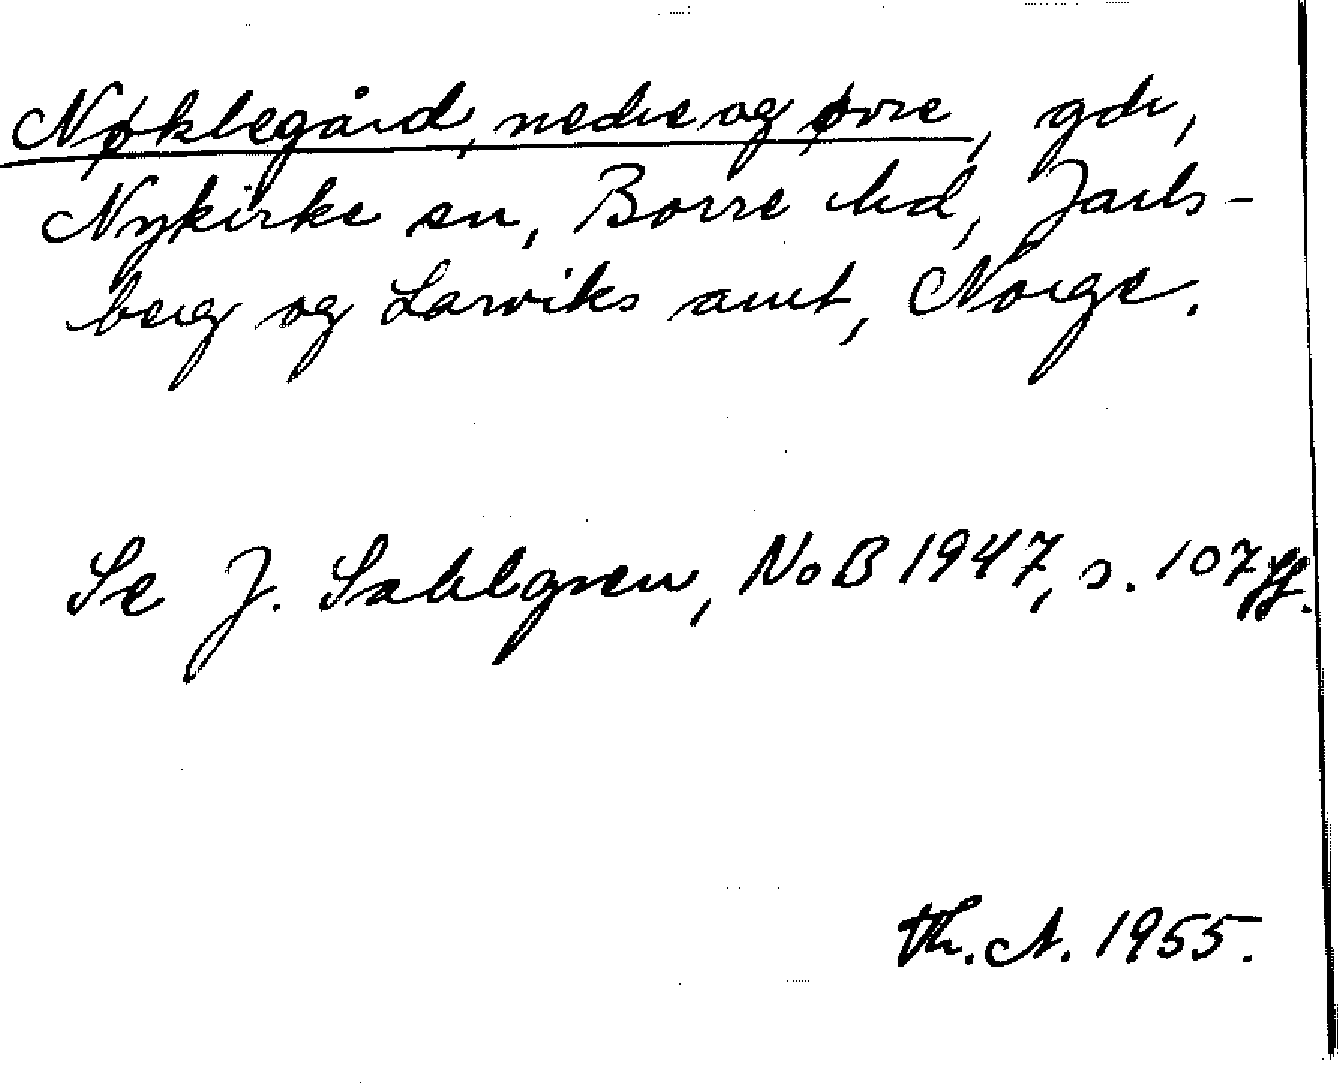 Nøklegård, nedre og øvre, gdr,
Nykirke sn, Borre hd, Jarls-
berg og Larviks amt, Norge.
Se J. Sahlgren, NoB 1947, s. 107 ff.
Th. A. 1955.